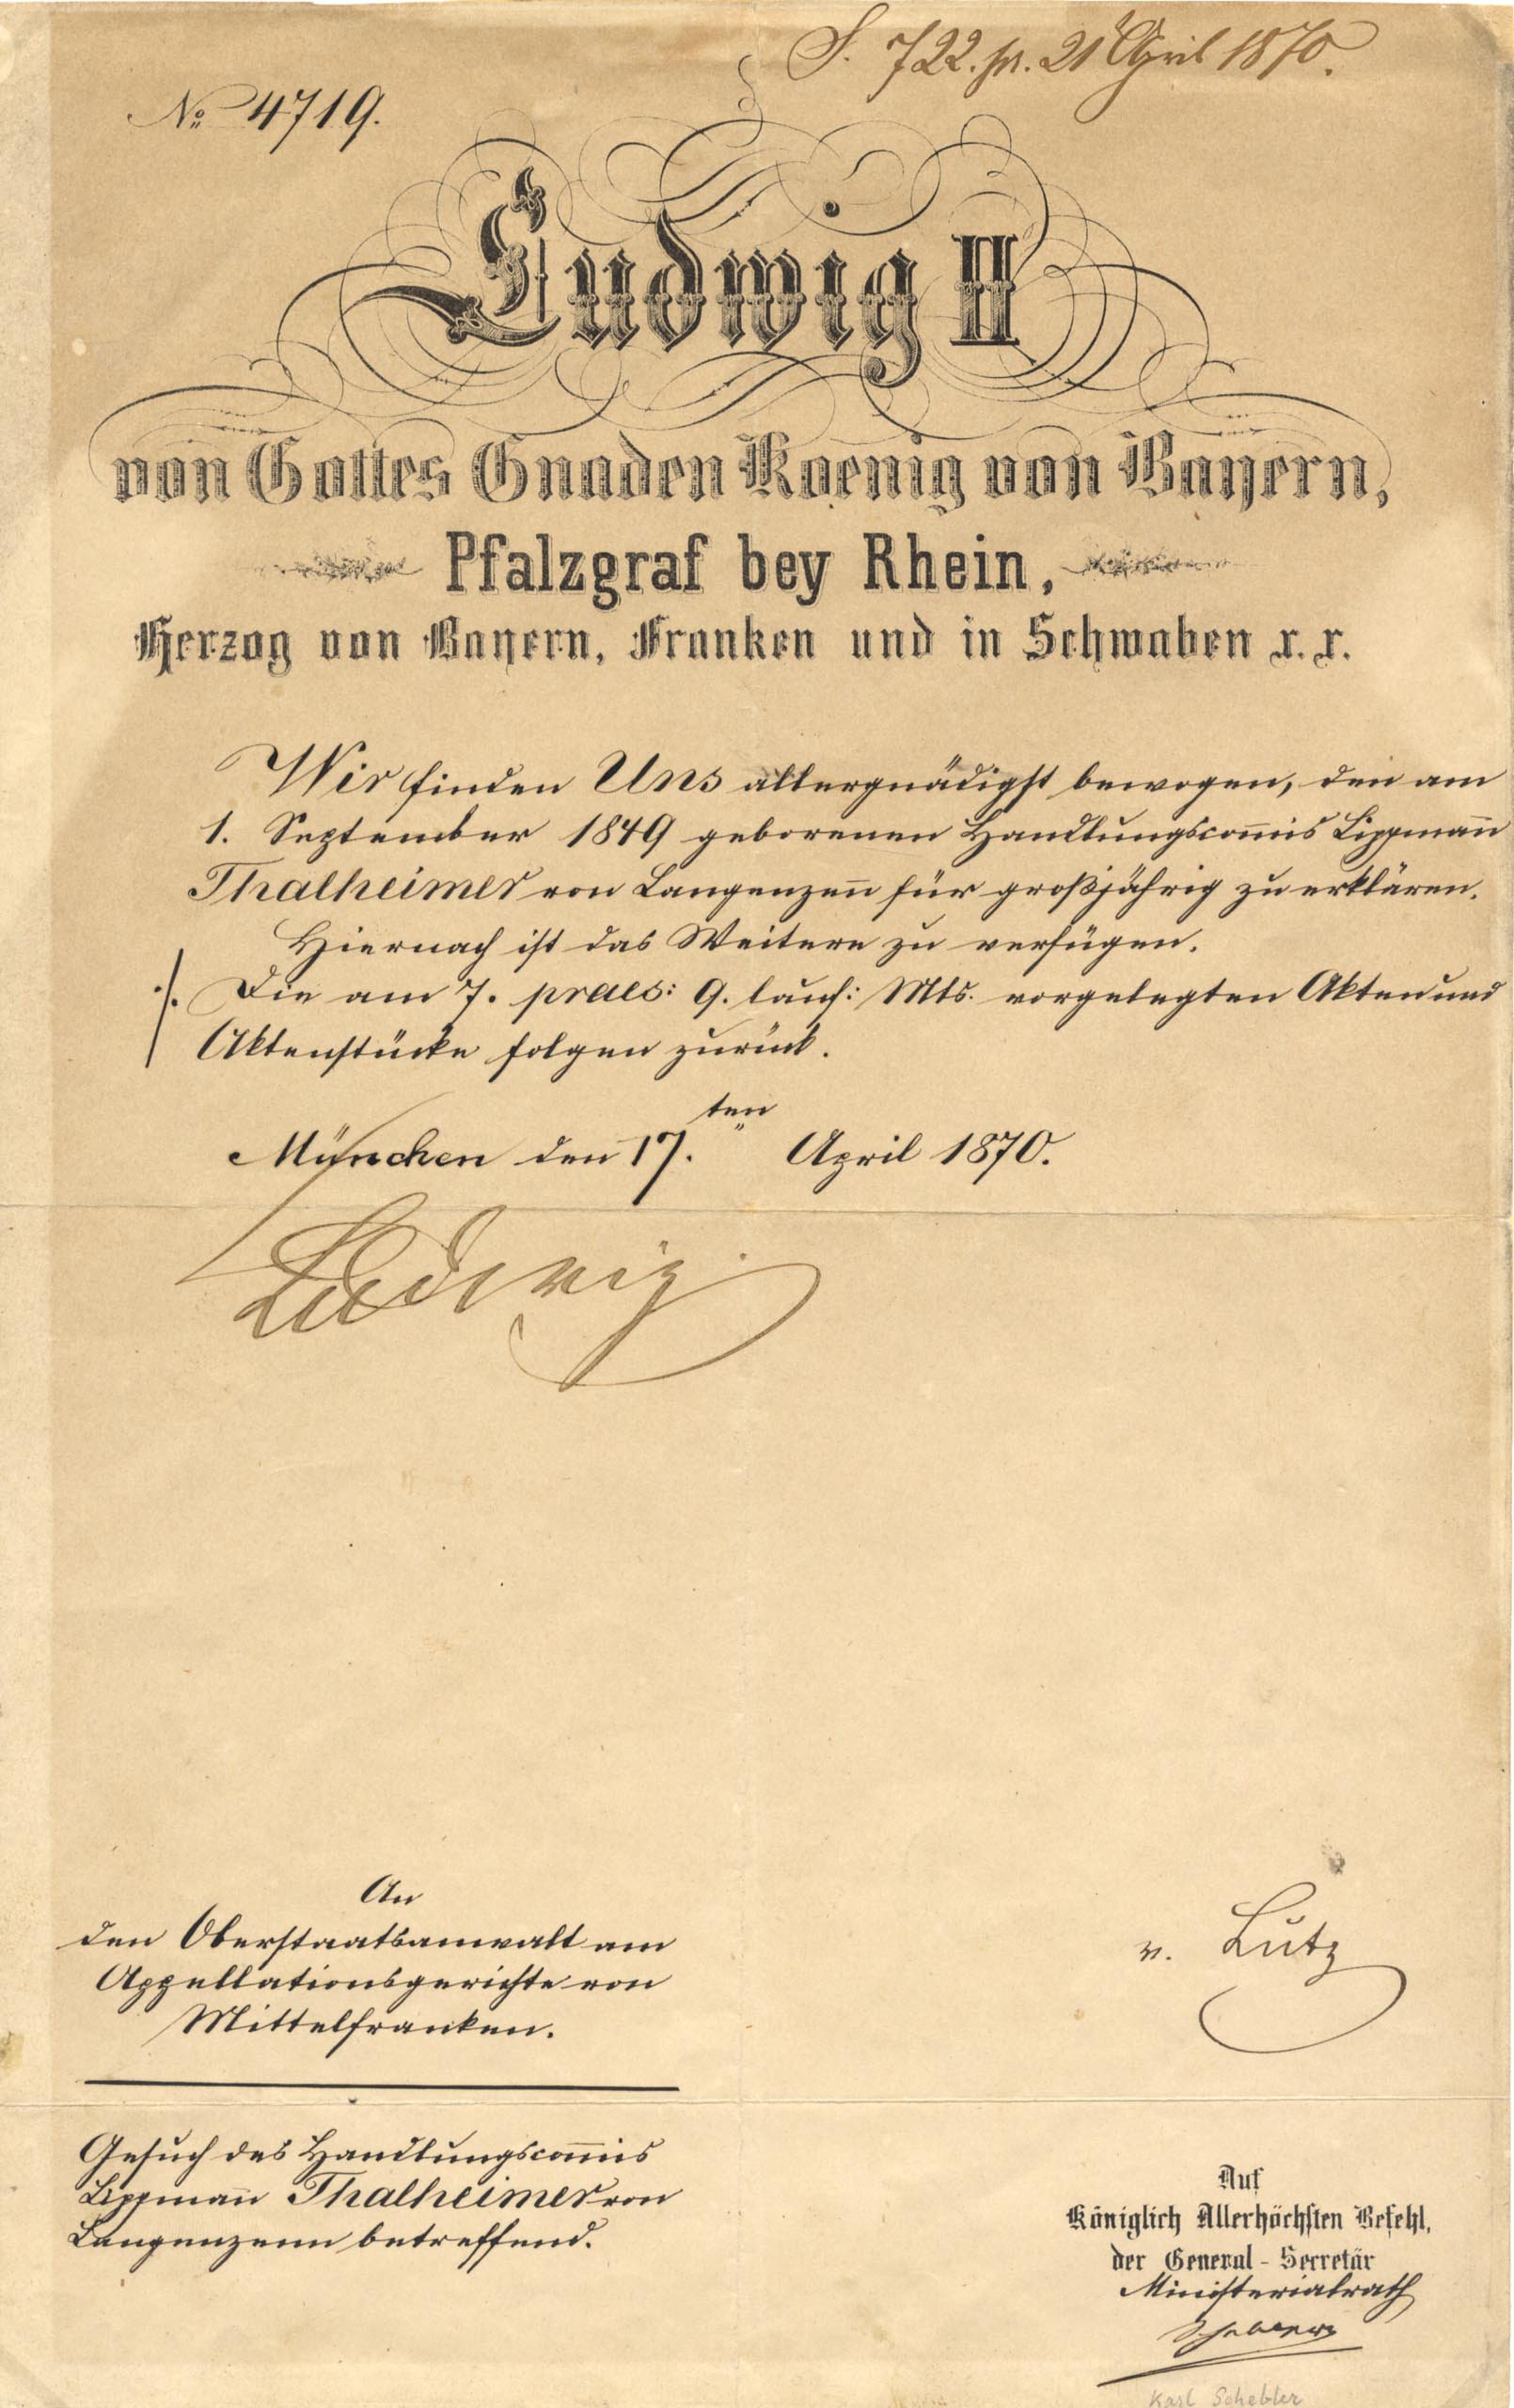 S. 722. pr. 21 April 1870.
No 4719.
Ludwig II
von Gottes Gnaden Koenig von Bayern,
Pfalzgraf bey Rhein,
Herzog von Bayern, Franken und in Schwaben r. r.
Wir finden Uns allergnädigst bewogen, den am
1. September 1849 geborenen Handlungscom̅is Lippman̅
Thalheimer von Langenzen̅ für großjährig zu erklären.
Hiernach ist das Weitere zu verfügen.
./. Die am 7. praes: 9. lauf: Mts. vorgelegten Akten und
Aktenstücke folgen zurück.
München den 17.ten April 1870.
Ludwig
An
den Oberstaatsanwalt am
Appellationsgerichte von
Mittelfranken.
v. Lutz
Gesuch des Handlungscom̅is
Lippman̅ Thalheimer von
Langenzenn betreffend.
Auf
Königlich Allerhöchsten Befehl,
der General-Secretär
Ministerialrath
Karl Schebler